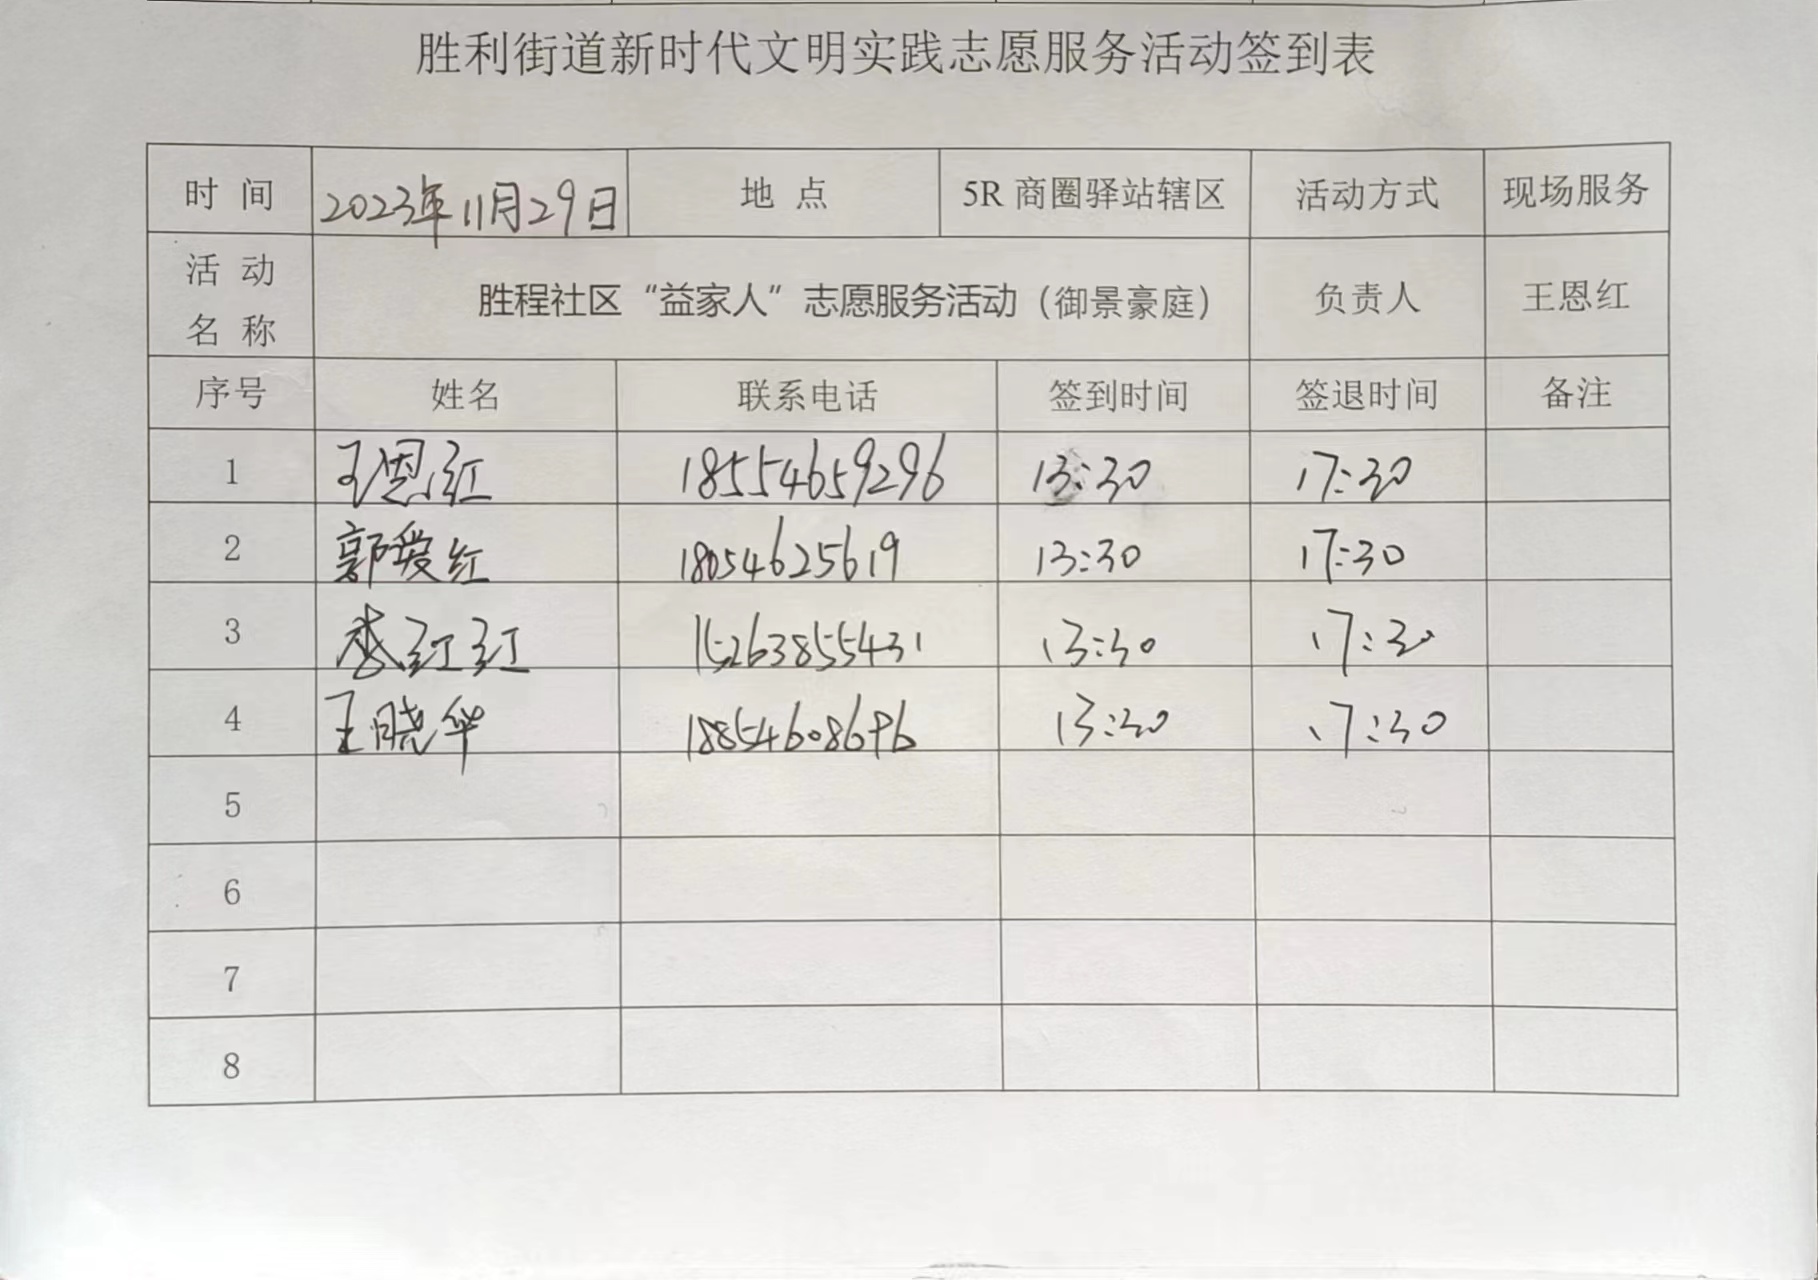 胜利街道新时代文明实践志愿服务活动签到表
时 间 2023年11月29日 地 点 5R 商圈驿站辖区 活动方式 现场服务
活 动
名 称 胜程社区“益家人”志愿服务活动（御景豪庭） 负责人 王恩红
序号 姓名 联系电话 签到时间 签退时间 备注
1 王恩红 18554659296 13:30 17:30
2 郭爱红 18054625619 13:30 17:30
3 李红红 15263855431 13:30 17:30
4 王晓华 13:30 17:30
5
6
7
8